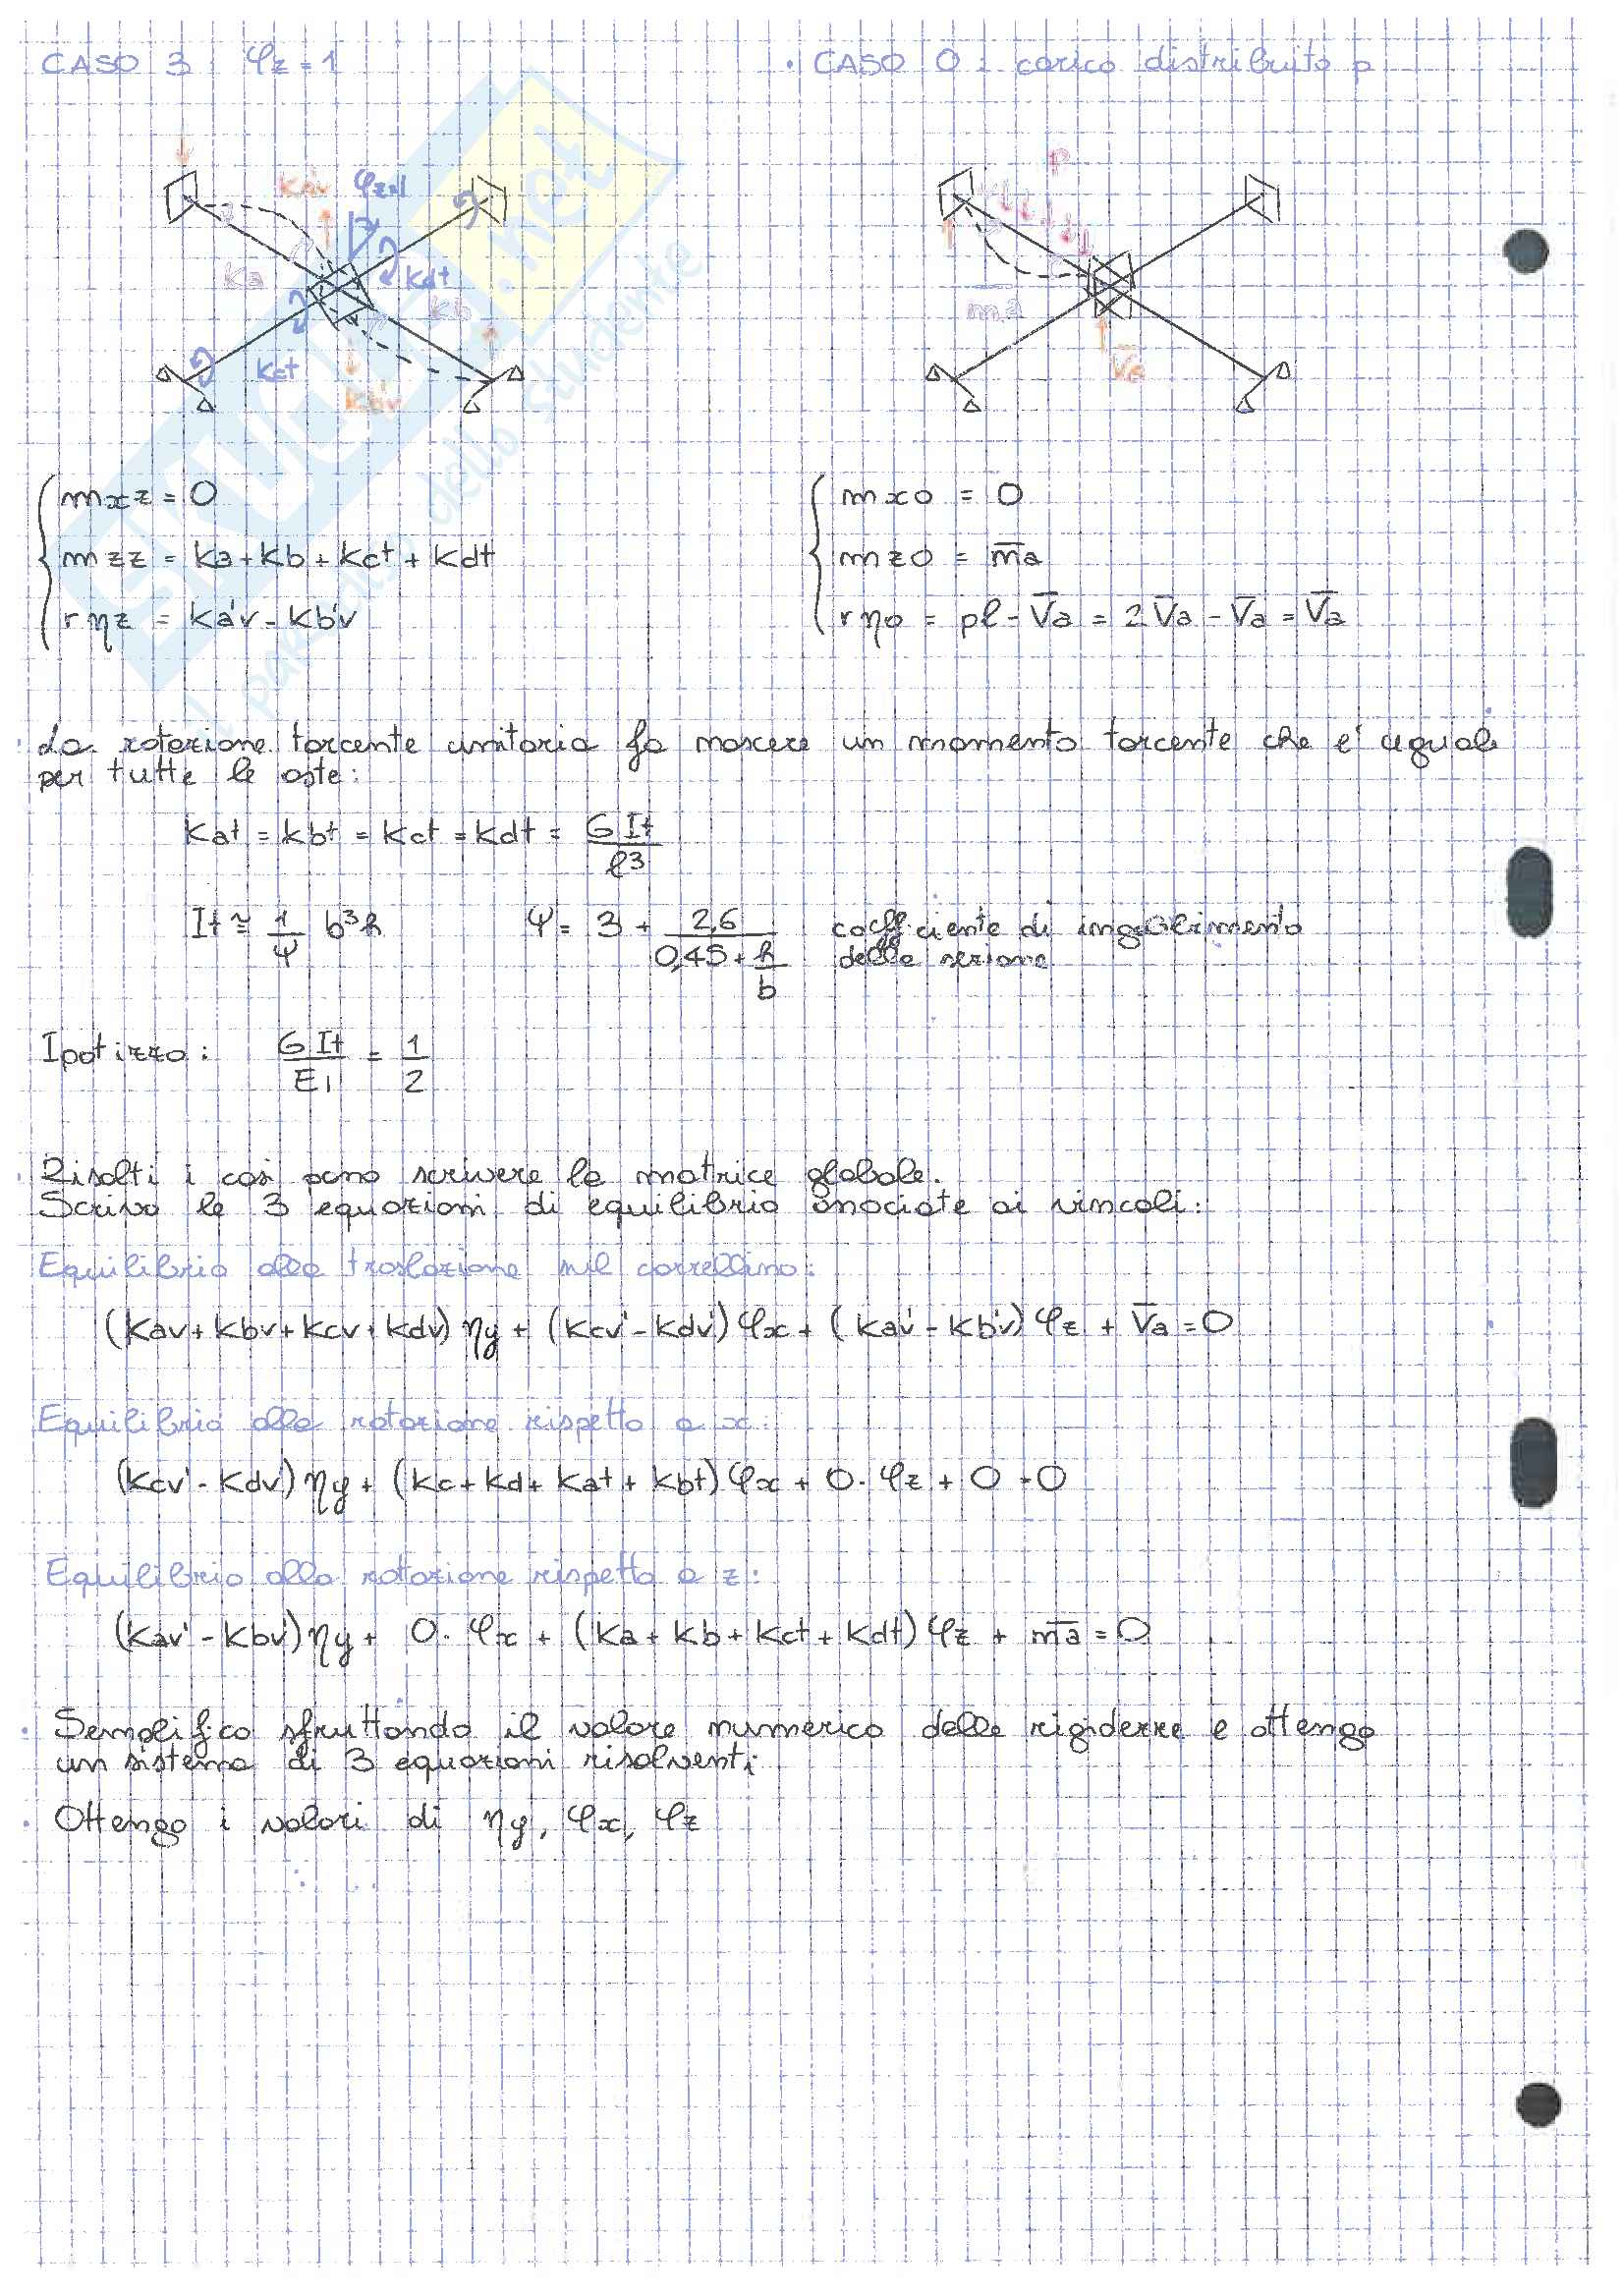 CASO 3 φz=1
• CASO 0: carico distribuito p
Ka'v φz=1
Ka Kdt
Kb
Kct
Kb'v
p
ma
Va
mxz = 0
mzz = Ka+Kb+Kct+Kdt
rηz = Ka'v-Kb'v
mx0 = 0
mz0 = m̅a
rη0 = pl - V̅a = 2V̅a - V̅a = V̅a
• La rotazione torcente unitaria fa nascere un momento torcente che e' uguale
per tutte le aste:
Kat = Kbt = Kct = Kdt = GIt/l³
It ≅ 1/ψ b³h ψ = 3 + 2,6/(0,45+h/b) coefficiente di ingobbimento
della sezione
Ipotizzo: GIt/EI = 1/2
• Risolti i casi posso scrivere la matrice globale.
Scrivo le 3 equazioni di equilibrio associate ai vincoli:
Equilibrio alla traslazione nel carrellino:
(Kav+Kbv+Kcv+Kdv)ηy + (Kcv'-Kdv')φx + (Kav'-Kb'v)φz + V̅a = 0
Equilibrio alla rotazione rispetto a x:
(Kcv'-Kdv')ηy + (Kc+Kd+Kat+Kbt)φx + 0·φz + 0 = 0
Equilibrio alla rotazione rispetto a z:
(Kav'-Kbv')ηy + 0·φx + (Ka+Kb+Kct+Kdt)φz + m̅a = 0
• Semplifico sfruttando il valore numerico delle rigidezze e ottengo
un sistema di 3 equazioni risolventi
• Ottengo i valori di ηy, φx, φz